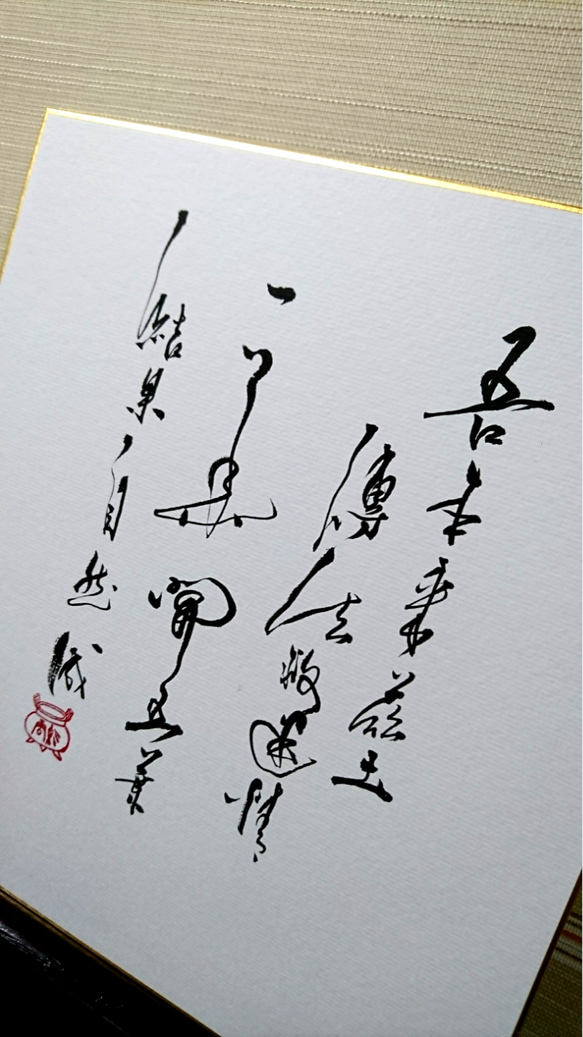 吾本来茲土
傳法救迷情
一華開五葉
結果自然成